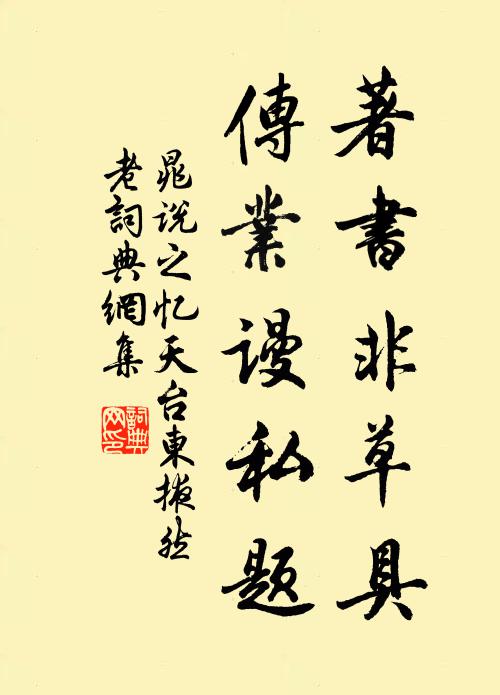 著書非草具
傳業謾私題
晁说之忆天台東掖然
老詞典網集
詞典网印